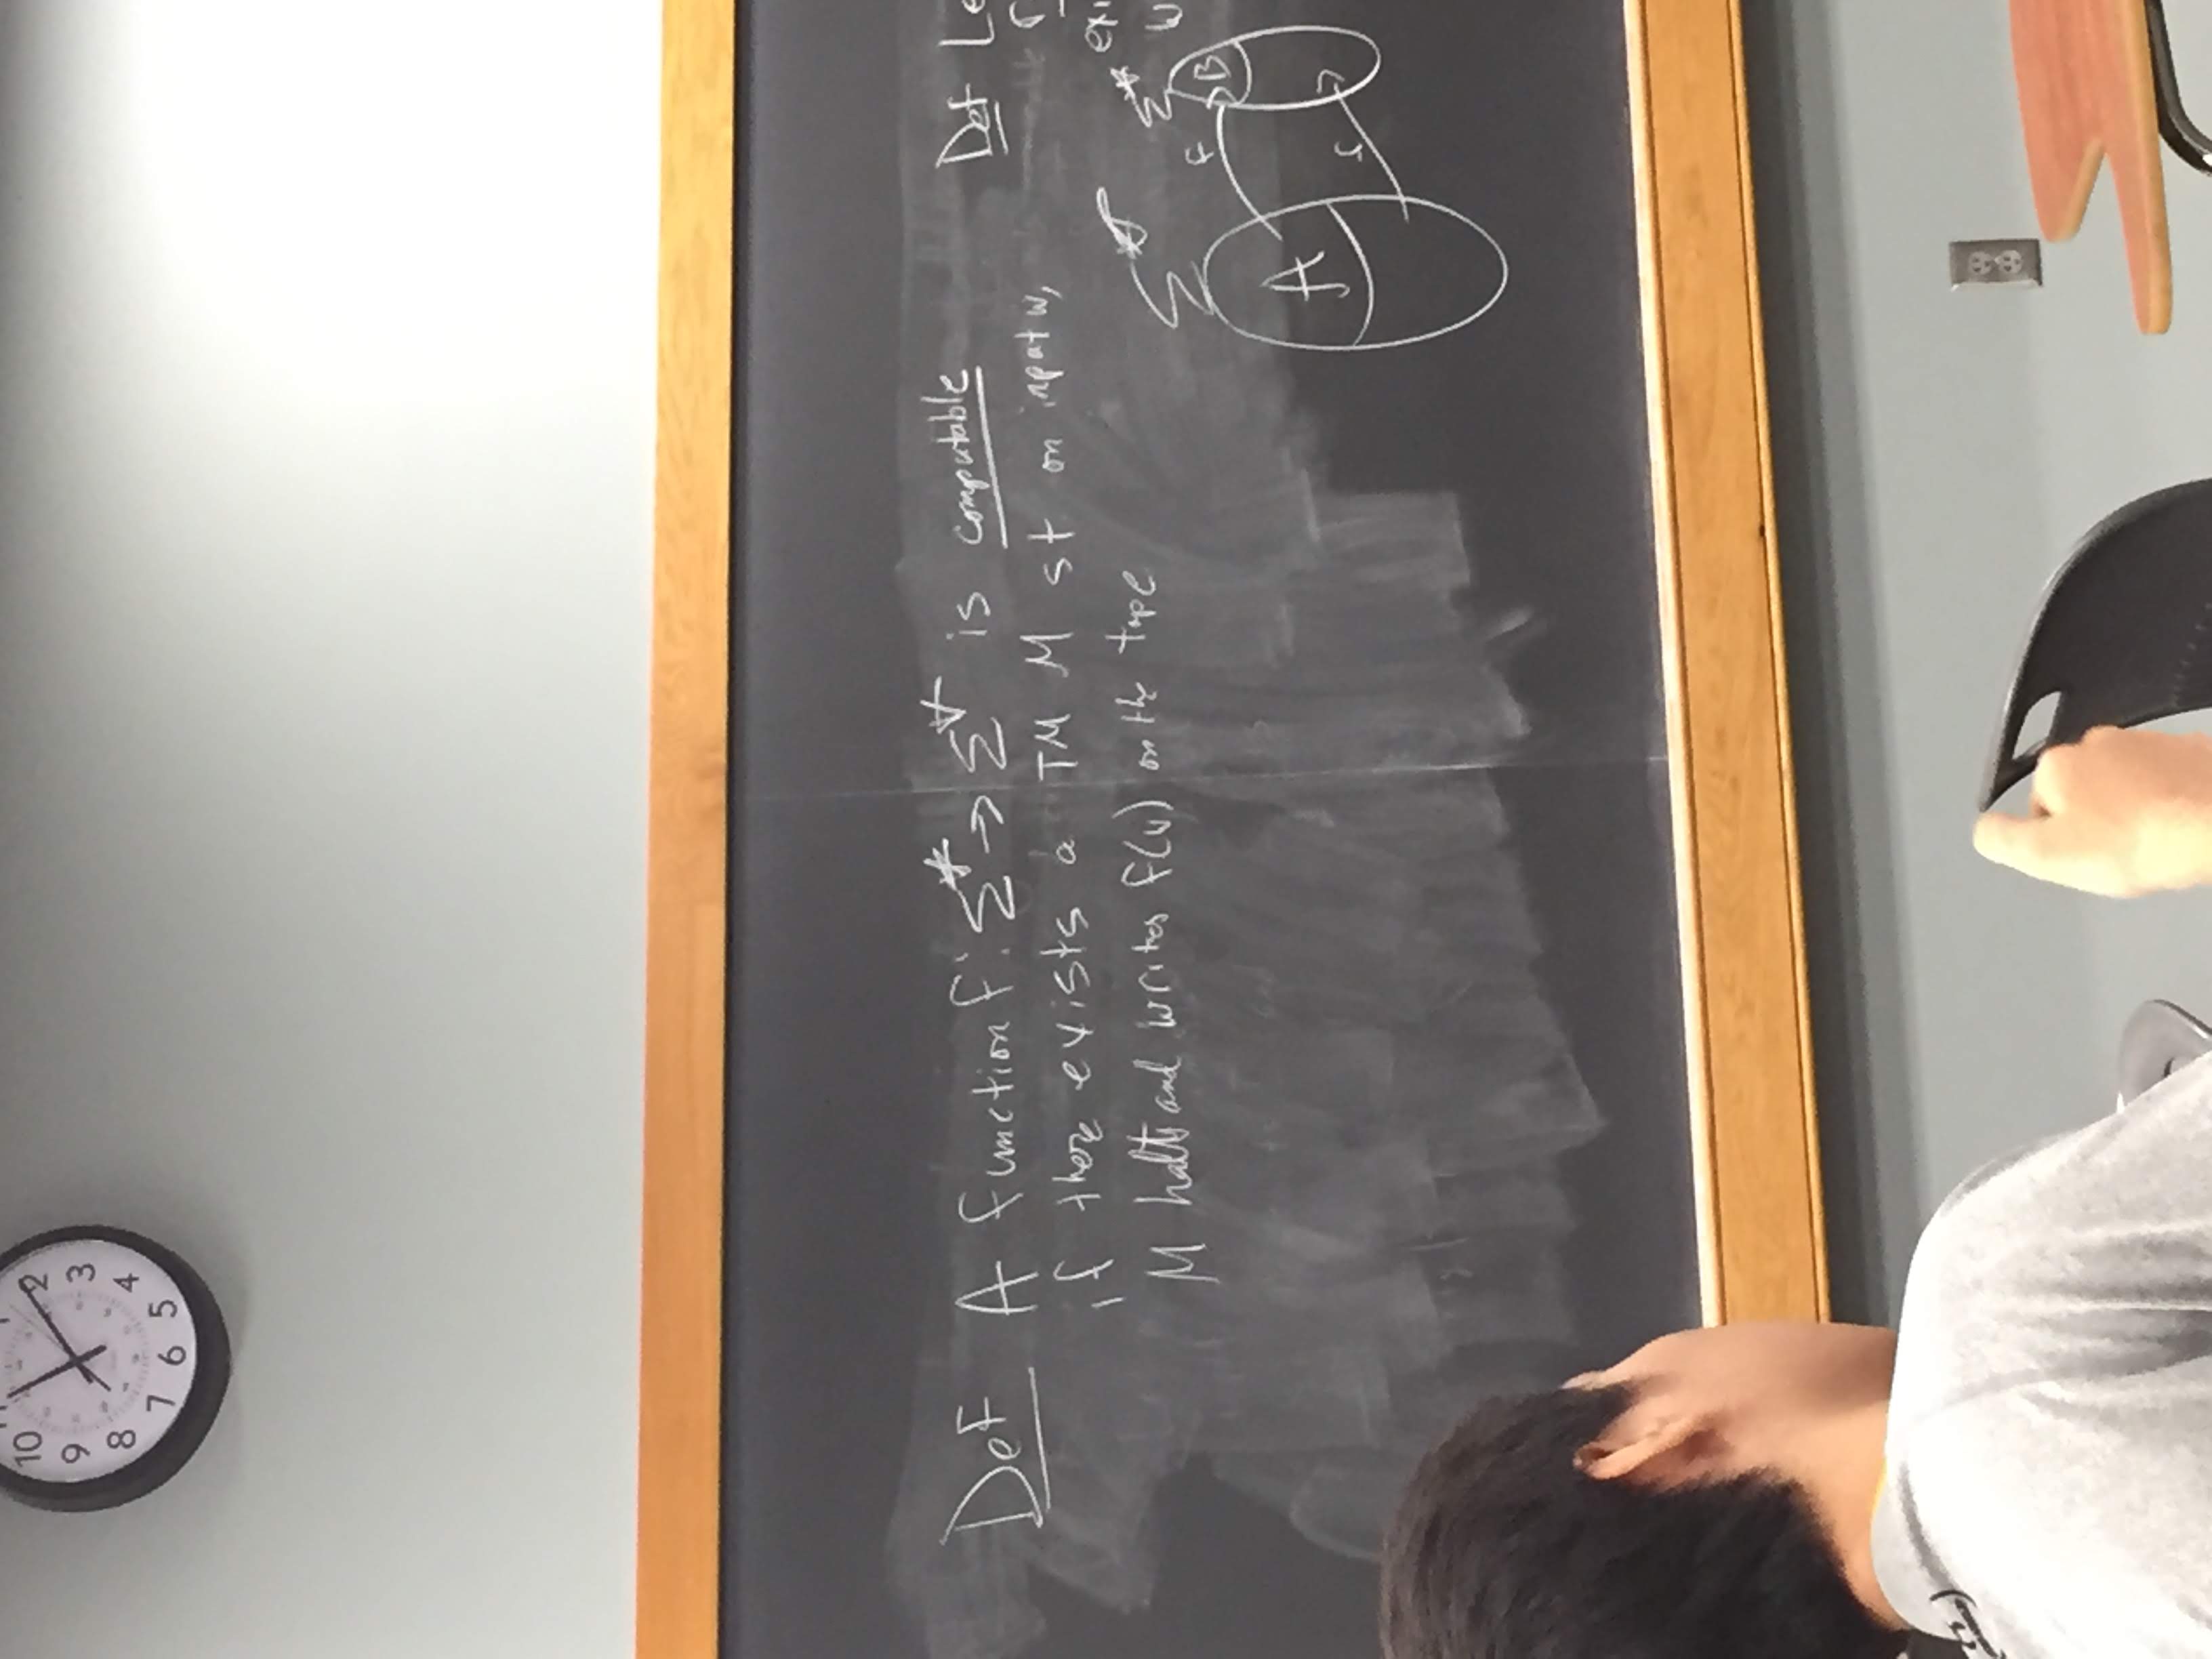 10
2
9
3
8
4
7
6
5
Def A function f: Σ* → Σ* is computable
if there exists a TM M st on input w,
M halts and writes f(w) on the tape
Def Le
exi
w
Σ*
Σ*
f
B
A
f